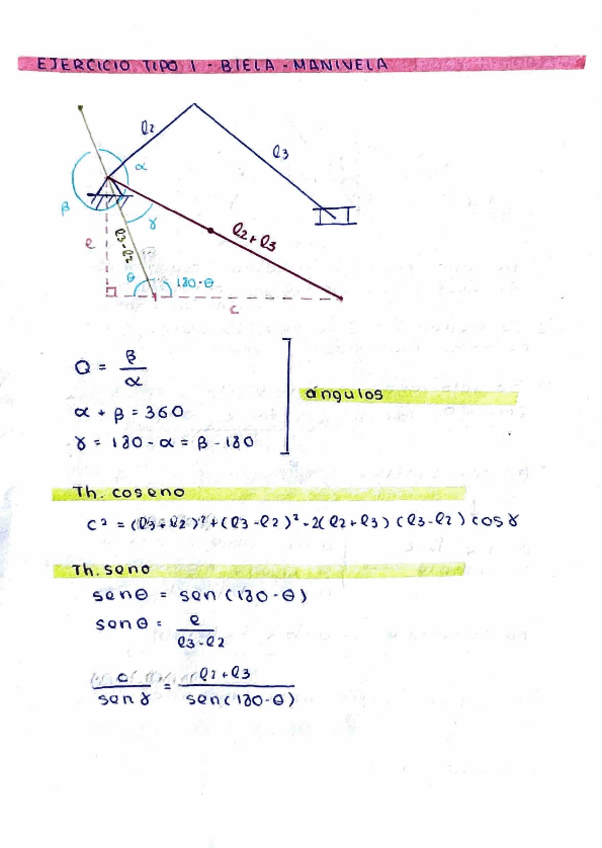 EJERCICIO TIPO 1 - BIELA - MANIVELA
l2
l3
α
β
γ
l2+l3
l3-l2
e
θ
180-θ
c
Q = β/α
α + β = 360
γ = 180 - α = β - 180
ángulos
Th. coseno
c² = (l3+l2)² + (l3-l2)² - 2(l2+l3)(l3-l2) cosγ
Th. seno
senθ = sen(180-θ)
senθ = e/l3-l2
c/senγ = l2+l3/sen(180-θ)